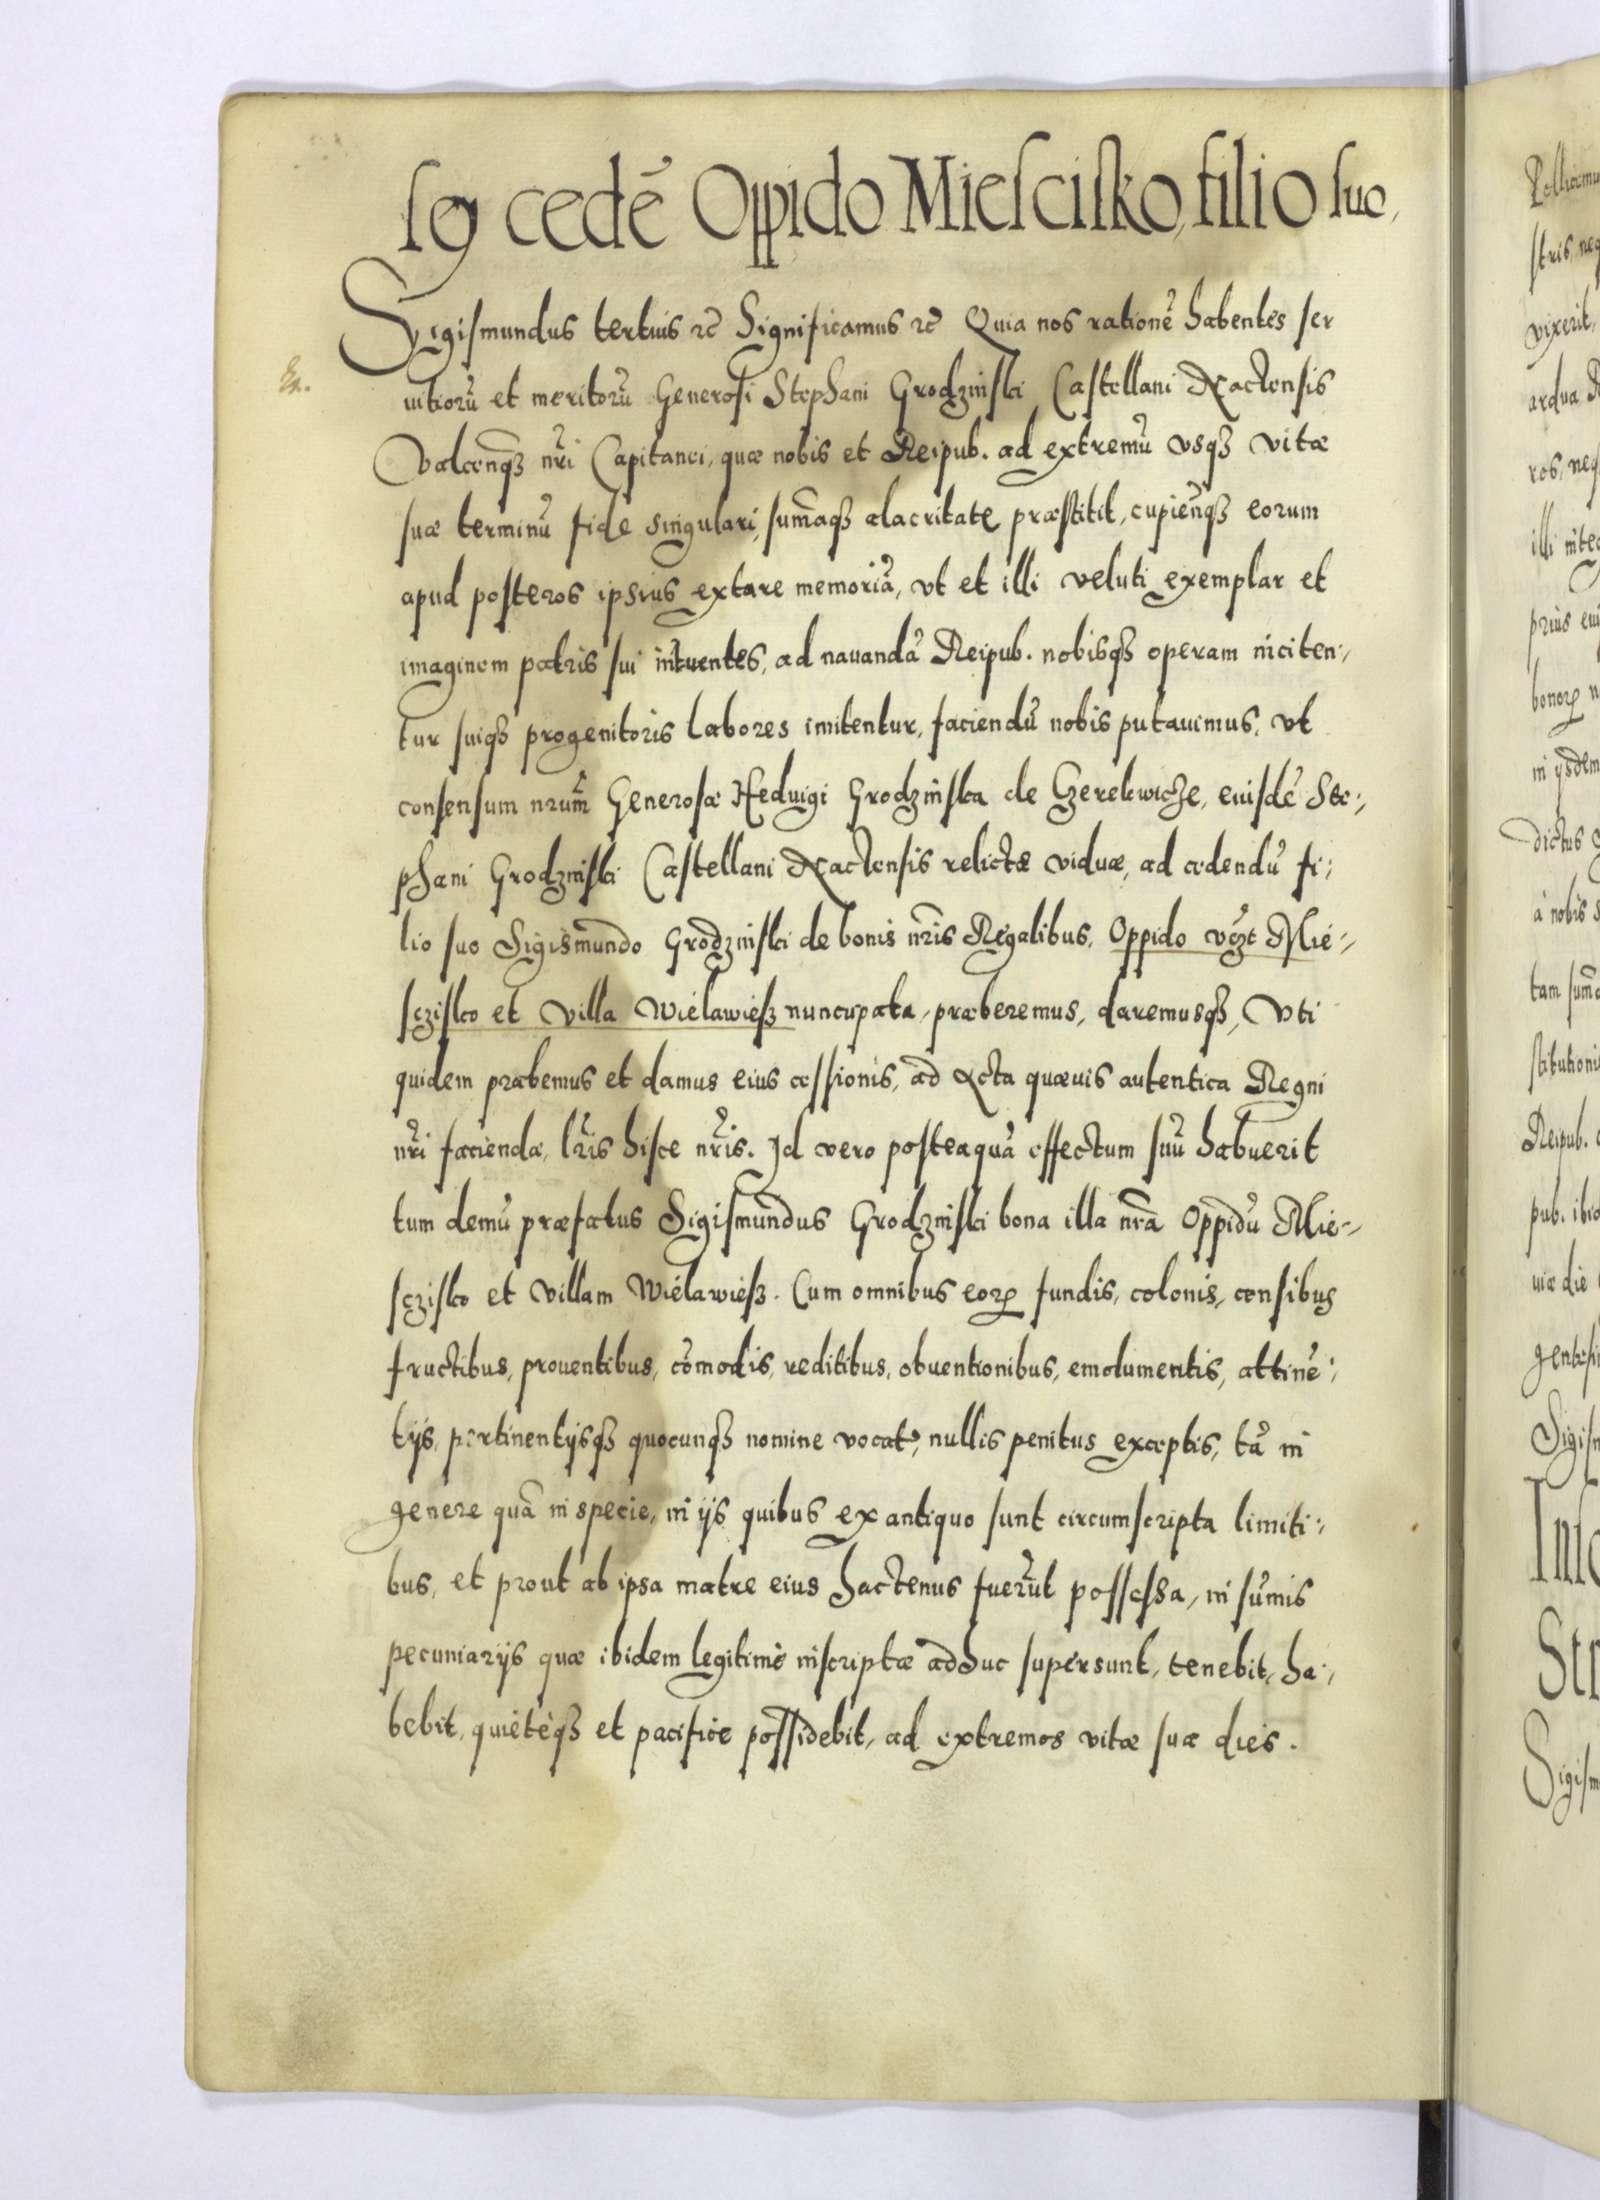 seu cedē Oppido Miescisko, filio suo,
Sigismundus tertius &c Significamus &c Quia nos rationē habentes ser
uitiorū et meritorū Generosi Stephani Grodzinski Castellani Naclensis
Valcenqꜟ nr̄i Capitanei, quæ nobis et Reipub. ad extremū vsqꜟ vitæ
suæ terminū fide singulari, sum̄aqꜟ alacritate præstitit, cupiēnqꜟ eorum
apud posteros ipsius extare memoriā, vt et illi veluti exemplar et
imaginem patris sui intuentes, ad nauandā Reipub. nobisqꜟ operam niciten-
tur suiqꜟ progenitoris labores imitentur, faciendū nobis putauimus, vt
consensum nrūm Generosæ Heduigi Grodzinska de Czerekwicze, eiusdē Ste-
phani Grodzinski Castellani Naclensis relictæ viduæ, ad cedendū fi-
lio suo Sigismundo Grodzinski de bonis nr̄is Regalibus, Oppido vcz̄t Mie-
sczisko et villa Wielawiesz nuncupata, præberemus, daremusqꜟ, Vti
quidem præbemus et damus eius cessionis, ad Acta quæuis autentica Regni
nr̄i faciendæ, lr̄is hisce nr̄is. Id vero posteaquā effectum suū habuerit
tum demū præfatus Sigismundus Grodzinski bona illa nr̄a Oppidū Mie-
sczisko et villam Wielawiesz. Cum omnibus eorꝝ fundis, colonis, censibus
fructibus, prouentibus, cōmodis, reditibus, obuentionibus, emolumentis, attinē-
tijs, pertinentijsqꜟ quocunqꜟ nomine vocat᷑, nullis penitus exceptis, tā in
genere quā in specie, in ijs quibus ex antiquo sunt circumscripta limiti-
bus, et prout ab ipsa matre eius hactenus fuerūt possessa, in sūmis
pecuniarijs quæ ibidem legitime inscriptæ adhuc supersunt, tenebit, ha-
bebit, quieteqꜟ et pacifice possidebit, ad extremos vitæ suæ dies.